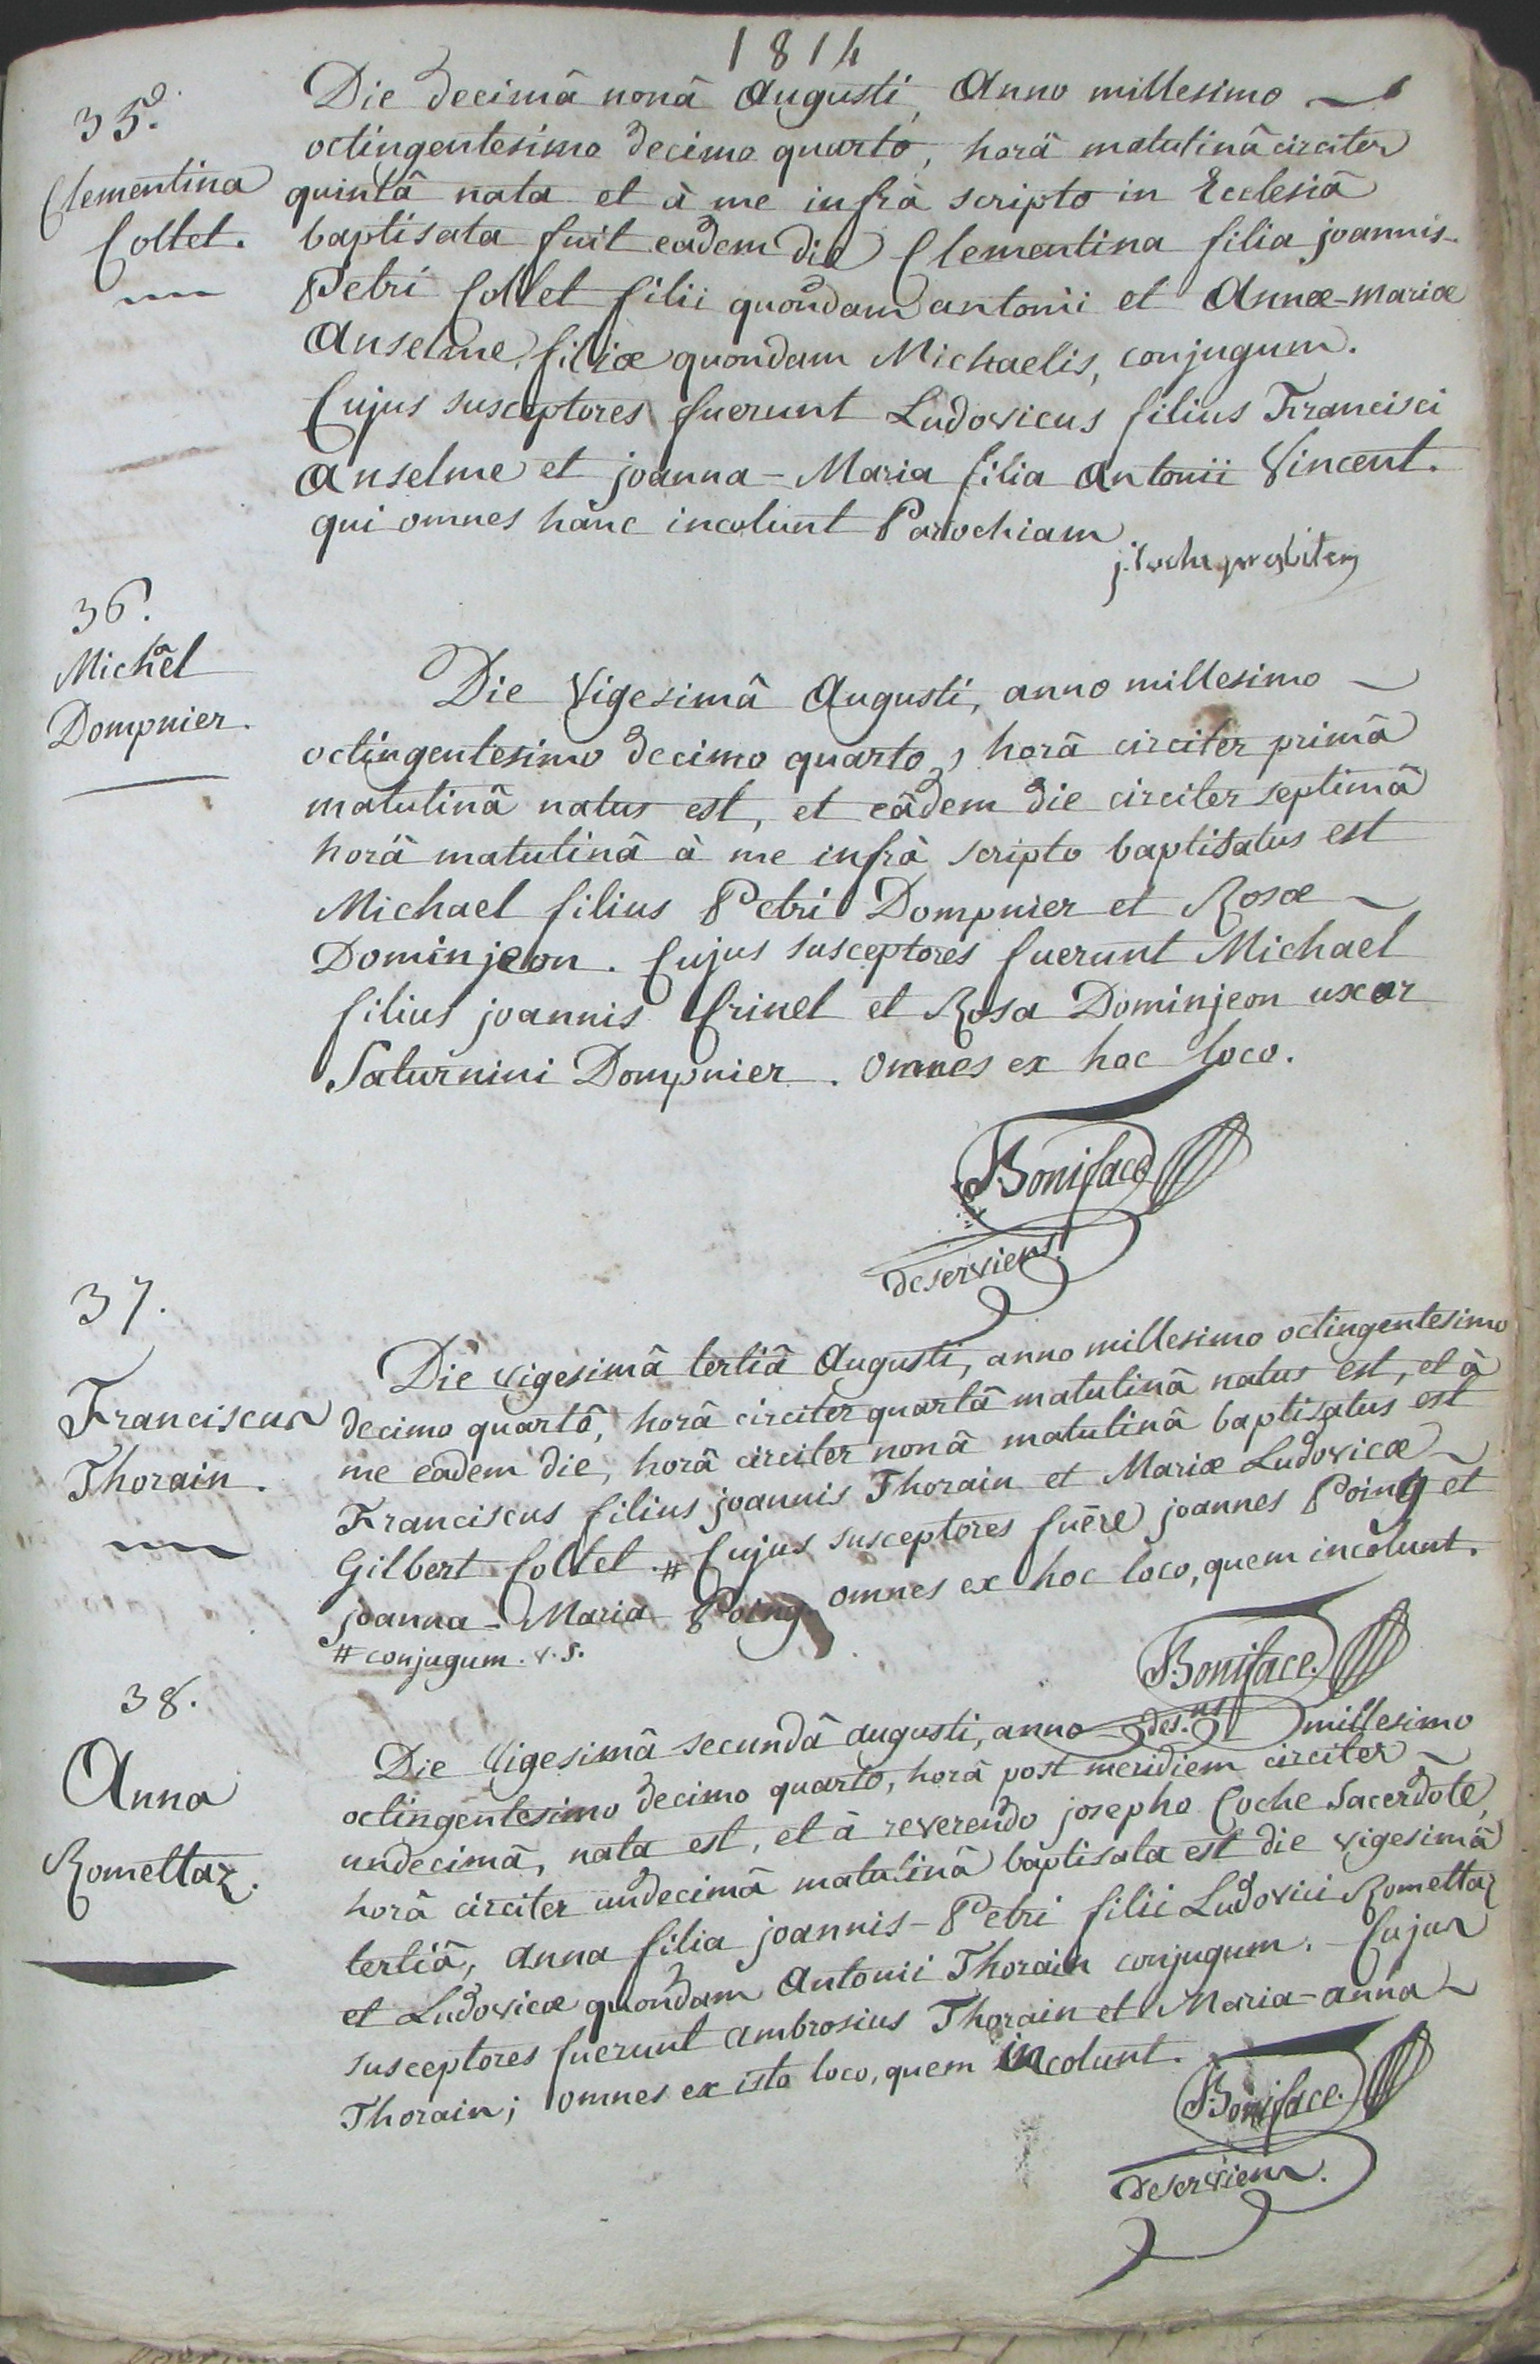 1814
35°.
Clementina
Collet.
Die decimâ nonâ Augusti, Anno millesimo
octingentesimo decimo quarto, horâ matutinâ circiter
quintâ nata et à me infrà scripto in Ecclesiâ
baptisata fuit eâdem die Clementina filia joannis-
Petri Collet filii quondam antonii et Annæ-mariæ
Anselme, filiæ quondam Michaelis, conjugum.
Cujus susceptores fuerunt Ludovicus filius Francisci
Anselme et joanna-Maria filia Antonii Vincent.
qui omnes hanc incolunt Parochiam.
j. Coche presbiter
36.
Michaël
Dompnier.
Die vigesimâ Augusti, anno millesimo
octingentesimo decimo quarto, horâ circiter primâ
matutinâ natus est, et eâdem die circiter septimâ
horâ matutinâ à me infrà scripto baptisatus est
Michael filius Petri Dompnier et Rosæ
Dominjeon. Cujus susceptores fuerunt Michael
filius joannis Crinel et Rosa Dominjeon uxor
Saturnini Dompnier. Omnes ex hoc loco.
Boniface
deserviens.
37.
Franciscus
Thorain.
Die vigesimâ tertiâ Augusti, anno millesimo octingentesimo
decimo quartô, horâ circiter quartâ matutinâ natus est, et à
me eadem die, horâ circiter nonâ matutinâ baptisatus est
Franciscus filius joannis Thorain et Mariæ Ludovicæ
Gilbert Collet. # Cujus susceptores fuêre joannes Poing et
joanna-Maria Poing. omnes ex hoc loco, quem incolunt.
# conjugum. v. s.
Boniface.
des.ns
38.
Anna
Romettaz.
Die vigesimâ secundâ augusti, anno millesimo
octingentesimo decimo quarto, horâ post meridiem circiter
undecimâ, nata est, et à reverendo josepho Coche Sacerdote,
horâ circiter undecimâ matutinâ baptisata est die vigesimâ
tertiâ, anna filia joannis-Petri filii Ludovici Romettaz
et Ludovicæ quondam Antonii Thorain conjugum. Cujus
susceptores fuerunt ambrosius Thorain et Maria-anna
Thorain; omnes ex isto loco, quem incolunt.
Boniface.
deserviens.